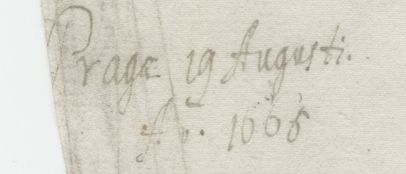 Pragæ 19 Augusti.
A.o. 1665